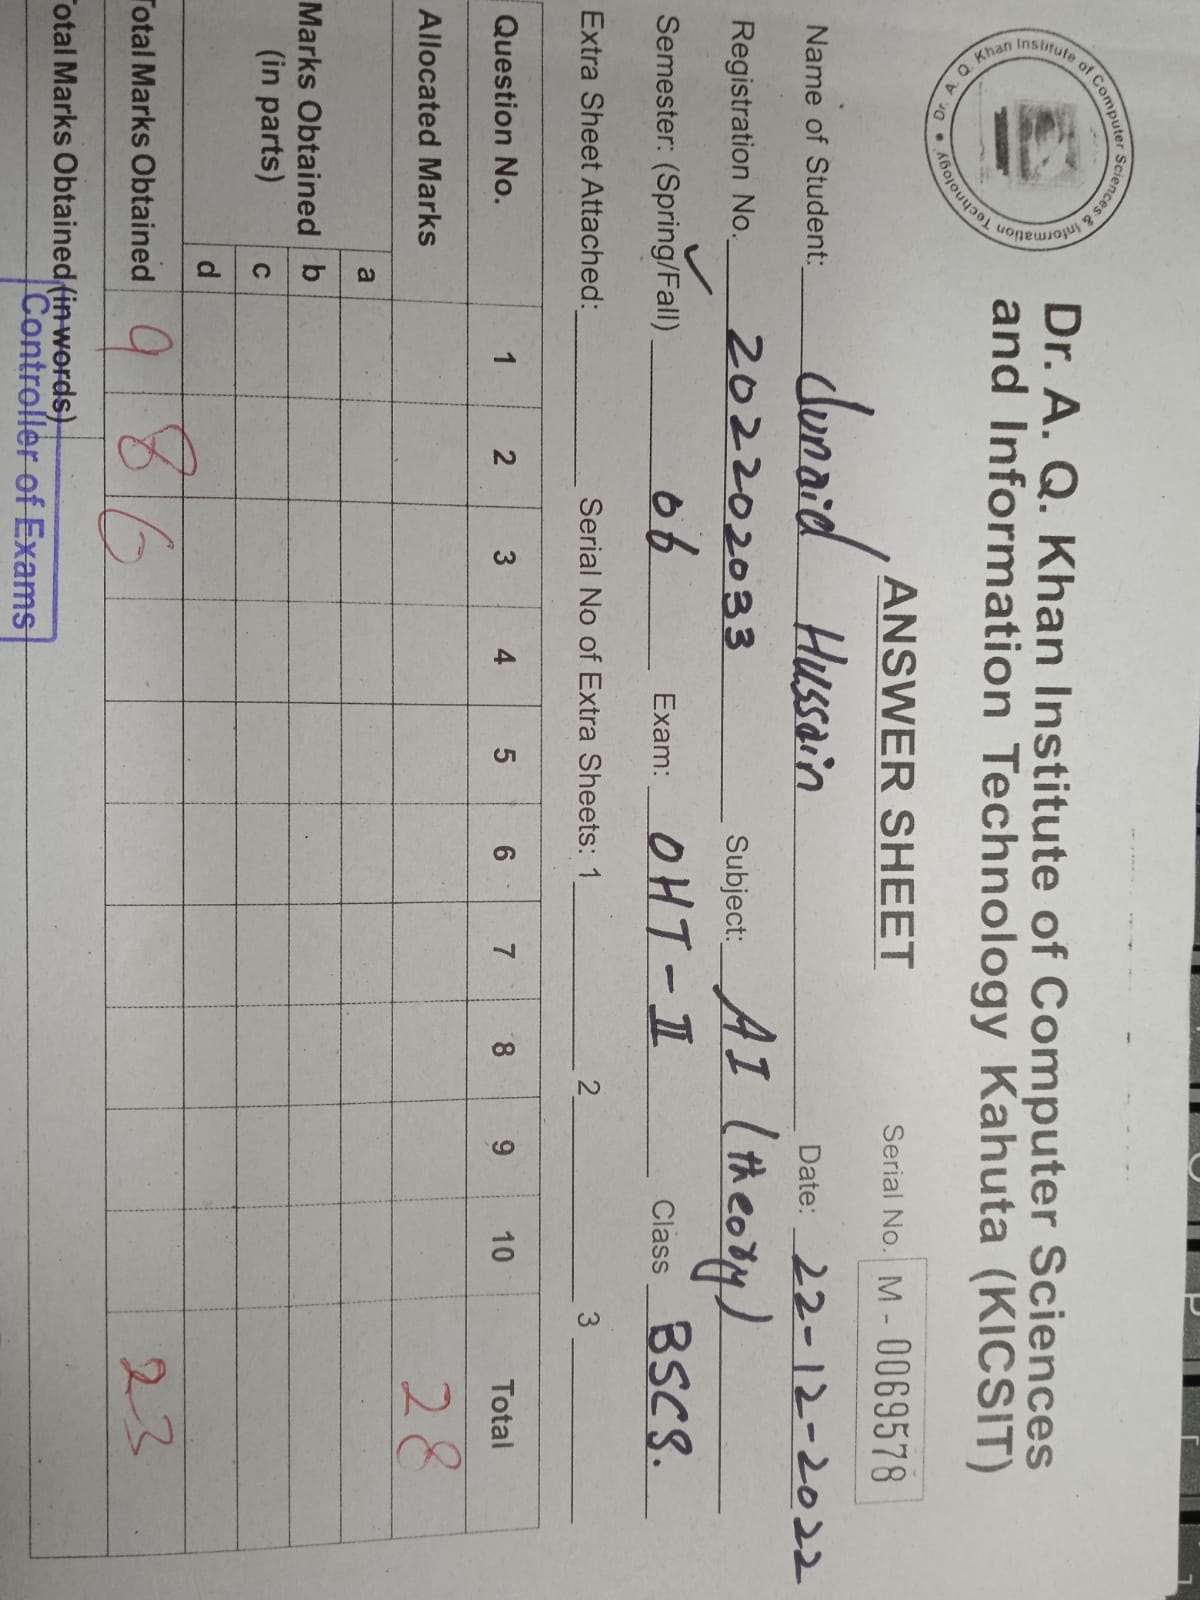 Dr. A. Q. Khan Institute of Computer Sciences & Information Technology
Dr. A. Q. Khan Institute of Computer Sciences
and Information Technology Kahuta (KICSIT)
ANSWER SHEET
Serial No. M - 0069578
Name of Student: Junaid Hussain Date: 22-12-2022
Registration No. 202202033 Subject: AI (theory)
Semester: (Spring/Fall) 06 Exam: OHT-II Class BSCS.
Extra Sheet Attached: Serial No of Extra Sheets: 1 2 3
Question No. 1 2 3 4 5 6 7 8 9 10 Total
Allocated Marks 28
Marks Obtained (in parts)
a
b
c
d
Total Marks Obtained 9 8 6 23
Total Marks Obtained (in words)
Controller of Exams